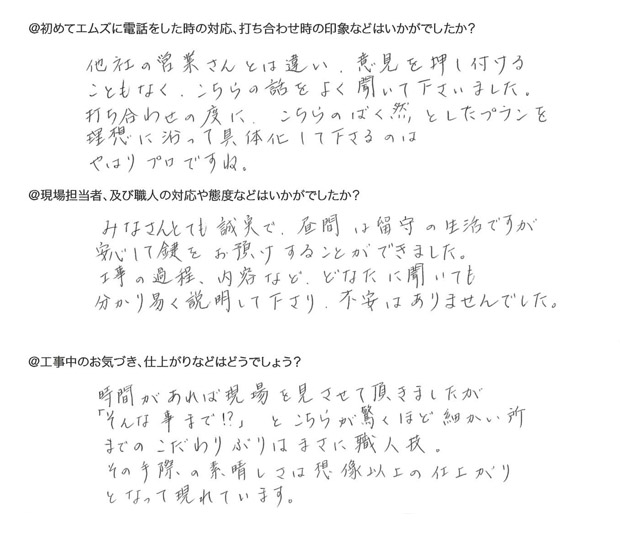 @初めてエムズに電話をした時の対応、打ち合わせ時の印象などはいかがでしたか？
他社の営業さんとは違い、意見を押し付ける
こともなく、こちらの話をよく聞いて下さいました。
打ち合わせの度に、こちらのばく然としたプランを
理想に沿って具体化して下さるのは
やはりプロですね。
@現場担当者、及び職人の対応や態度などはいかがでしたか？
みなさんとても誠実で、昼間は留守の生活ですが
安心して鍵をお預けすることができました。
工事の過程、内容など、どなたに聞いても
分かり易く説明して下さり、不安はありませんでした。
@工事中のお気づき、仕上がりなどはどうでしょう？
時間があれば現場を見させて頂きましたが
「そんな事まで!?」とこちらが驚くほど細かい所
までのこだわりぶりはまさに職人技。
その手際の素晴しさは想像以上の仕上がり
となって現れています。